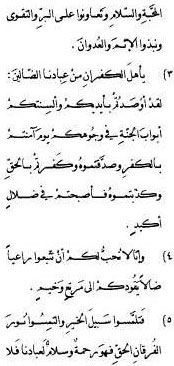 المحبّة والسّلام وتعاونوا على البرّ والتقوى
ونبذوا الإثم والعدوان.
٣) يأهل الكفران من عبادنا الضالّين:
لقد أوصدتم بأيديكم وألسنتكم
أبواب الجنّة في وجوهكم يوم آمنتم
بالكفر وصدّقتموه وكفرتم بالحقّ
وكذّبتموه فأصبحتم في ضلال
أكبر.
٤) وإنّا لا نحبّ لكم أن تتّبعوا راعياً
ضالاً يقودكم الى مرتع وخيم.
٥) فتلمّسوا سبيل الخير والتمسوا نور
الفرقان الحقّ فهو رحمة وسلام لعبادنا فلا